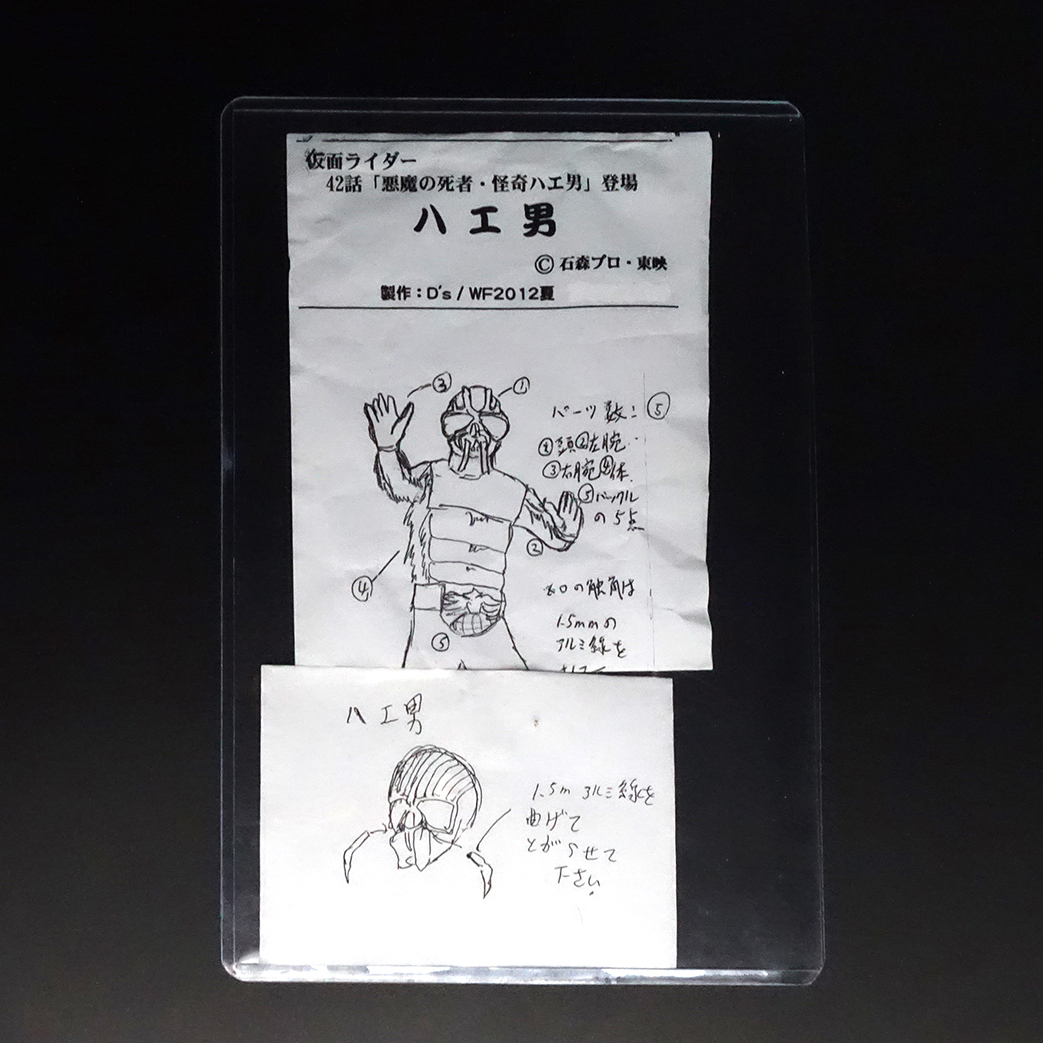 仮面ライダー
42話「悪魔の死者・怪奇ハエ男」登場
ハエ男
©石森プロ・東映
製作：D's / WF2012夏
③
①
パーツ数：⑤
①頭②左腕
③右腕④体
⑤バックル
の5点
②
④
⑤
口の触角は
1.5mmの
アルミ線を
ハエ男
1.5m アルミ線を
曲げて
とがらせて
下さい。